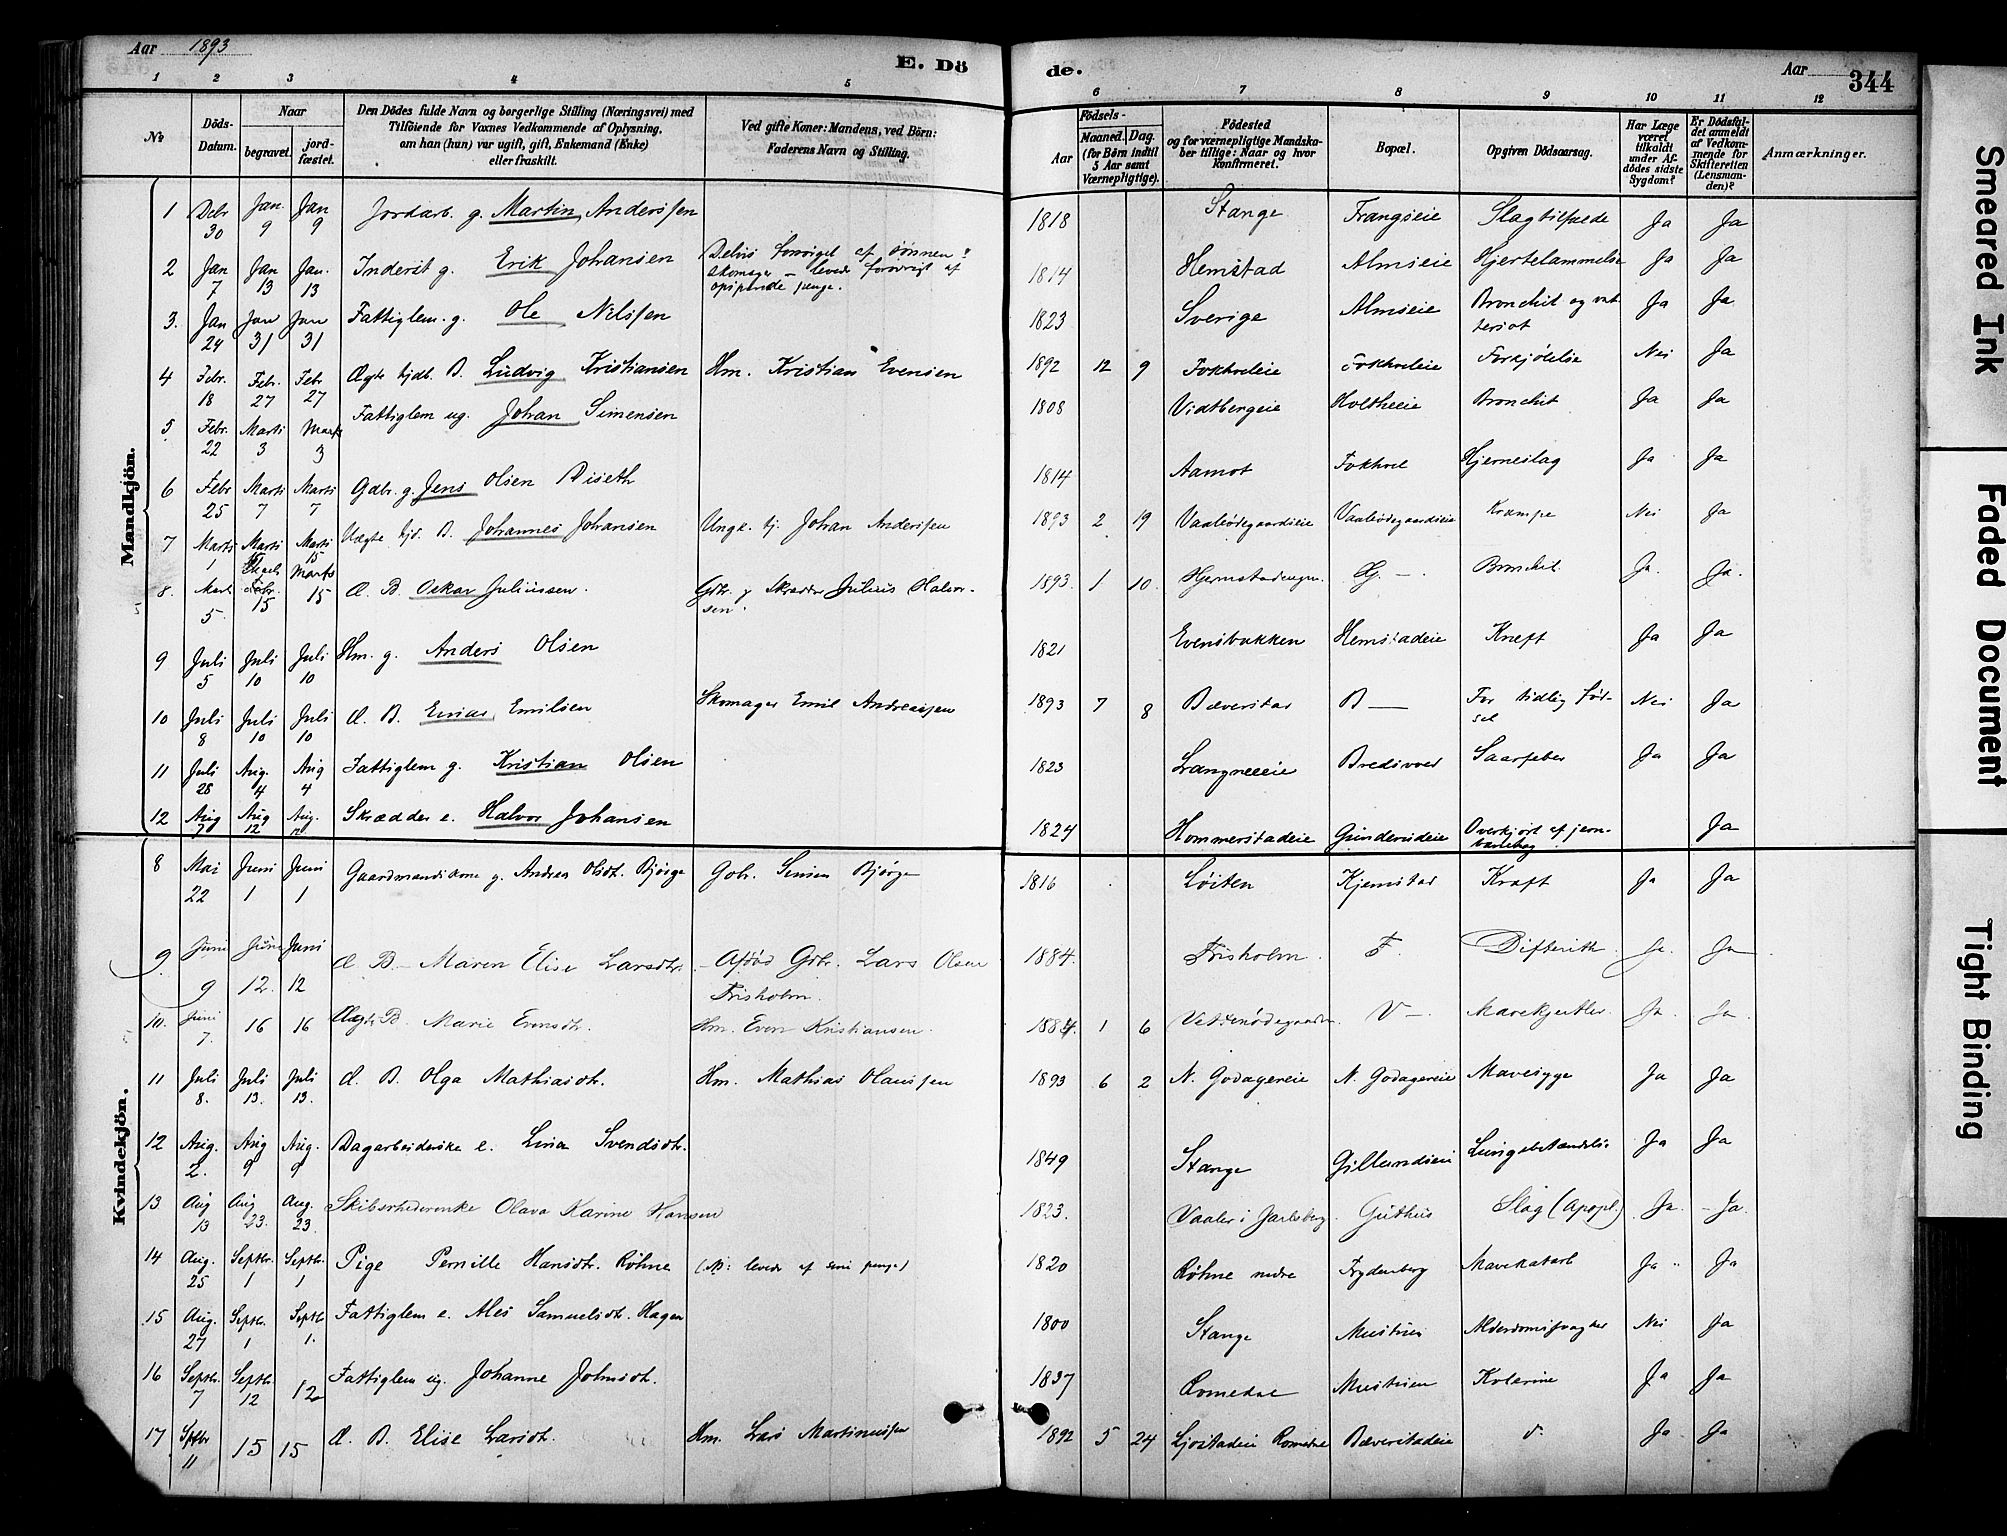 Aar 1893
E. Dö
de.
Aar
344
1 2 3 4 5 6 7 8 9 10 11 12
No
Döds-Datum.
Naar
begravet.
jord-fæstet.
Den Dödes fulde Navn og borgerlige Stilling (Næringsvei) med
Tilföiende for Voxnes Vedkommende af Oplysning,
om han (hun) var ugift, gift, Enkemand (Enke)
eller fraskilt.
Ved gifte Koner: Mandens, ved Börn:
Faderens Navn og Stilling.
Födsels-
Aar
Maaned. Dag.
(for Börn indtil
5 Aar samt
Værnepligtige).
Födested
og for værnepligtige Mandska-
ber tillige: Naar og hvor
konfirmeret.
Bopæl.
Opgiven Dödsaarsag.
Har Læge
været
tilkaldt
under Af-
dödes sidste
Sygdom?
Er Dödsfal-
det anmeldt
af Vedkom-
mende for
Skifteretten
(Lensman-
den)?
Anmærkninger.
Mandkjön.
1 Debr 30 Jan. 9 Jan 9 Jordarb. g. Martin Anderssen 1818 Stange Frangseie Slagtilfælde Ja Ja
2 Jan 7 Jan 13 Jan. 13 Inderst g. Erik Johansen Delvis forsörget af sönnen Skomager – levede forövrigt af opsparede penge. 1814 Hemstad Almseie Hjertelammelse Ja Ja
3. Jan 24 Jan 31 Jan 31 Fattiglem. g. Ole Nilssen 1823 Sverige Almseie Bronchit og vatersot Ja Ja
4 Febr. 18 Febr. 27 Febr. 27 Ægte hjdb. B. Ludvig Kristiansen Hm. Kristian Evensen 1892 12 9 Fokholeie Fokholeie Forkjölelse Nei Ja
5 Febr. 22 Marts 3 Marts 3 Fattiglem ug. Johan Simensen 1808 Vidtbergeie Holtheeie Bronchit Ja Ja
6 Febr 25 Marts 7 Marts 7 Gdbr. g. Jens Olsen Diseth 1814 Aamot Fokhol Hjerneslag Ja Ja
7 Marts 1 Marts 15 Marts 15 Uægte hjd. B. Johannes Johansen Ungk. tj. Johan Anderssen 1893 2 19 Vaaleödegaardseie Vaaleödegaardseie Krampe Nei Ja
8. Marts 5. 15 Marts 15 Æ. B. Oskar Juliussen. Gdbr. g Skrædder Julius Halvorsen. 1893. 1 10. Hjemstadengen. Hj. – Bronchit Ja. Ja.
9 Juli 5 Juli 10 Juli 10 Hm. g. Anders Olsen 1821 Evensbakken Hemstadeie Kræft Ja Ja
10 Juli 8 Juli 10 Juli 10 Æ. B. Einar Emilsen Skomager Emil Andreassen 1893 7 8 Bæverstad B — For tidlig födsel Nei Ja
11 Juli 28 Aug. 4 Aug 4 Fattiglem g. Kristian Olsen 1823 Langneeie Bredsvold Saarfeber Ja Ja
12 Aug 7 Aug 12 Aug. 12 Skrædder e. Halvor Johansen 1824 Hommerstadeie Gunderudeie Overkjört af jernbanetog Ja
Kvindekjön.
8 Mai 22 Juni 1 Juni 1 Gaardmandskone g. Andrea Olsdt. Bjørge Gbr. Simen Bjørge 1816 Löiten Kjemstad Kræft Ja Ja
9 Juni 9 Juni 12. Juni 12 Æ B – Maren Elise Larsdtr. – Afdöd Gbr. Lars Olsen Frisholm. 1884. Frisholm. F. Difterith. Ja. Ja
10. Juni 7. 16 16 Ægte B Marie Evensdtr. Hm. Even Kristiansen. 1884. 1 6 Vettenödegaarden. V –. Mavekjertler. Ja. Ja.
11 Juli 8. Juli 13. Juli 13. Æ. B. Olga Mathiasdtr. Hm. Mathias Olaussen 1893 6 2 N. Godagereie N. Godagereie Mavesyge Ja Ja
12 Aug. 2. Aug 9 Aug. 9 Dagarbeiderske e. Lina Svendsdtr. 1849 Stange Gillundseie Lungebetændelse Ja Ja
13 Aug 13 Aug 23. Aug. 23 Skibsrhederenke Olava Karine Hansen 1823. Vaaler i Jarlsberg. Guthus Slag (Apopl.) Ja. – Ja.
14 Aug. 25 Septbr. 1 Septbr. 1 Pige Pernille Hansdtr. Röhne (NB: levede af sine penge) 1820 Röhne nedre Frydenberg Mavekatarh Ja Ja
15 Aug. 27 Septbr. 1 Septbr 1. Fattiglem e. Ales Samuelsdtr. Hagen 1800 Stange Mustuen Alderdomssvaghed Nei Ja
16 Septbr. 7 Septbr. 12 12 Fattiglem ug. Johanne Johnsdtr. 1837 Romedal Mustuen Kolerine Ja Ja
17 Septbr 11 15 15 Æ. B. Elise Larsdt. Hm. Lars Martinussen 1892 5 24 Ljostadeie Romedal Bæverstadeie d. Ja Ja
Smeared Ink
Faded Document
Tight Binding